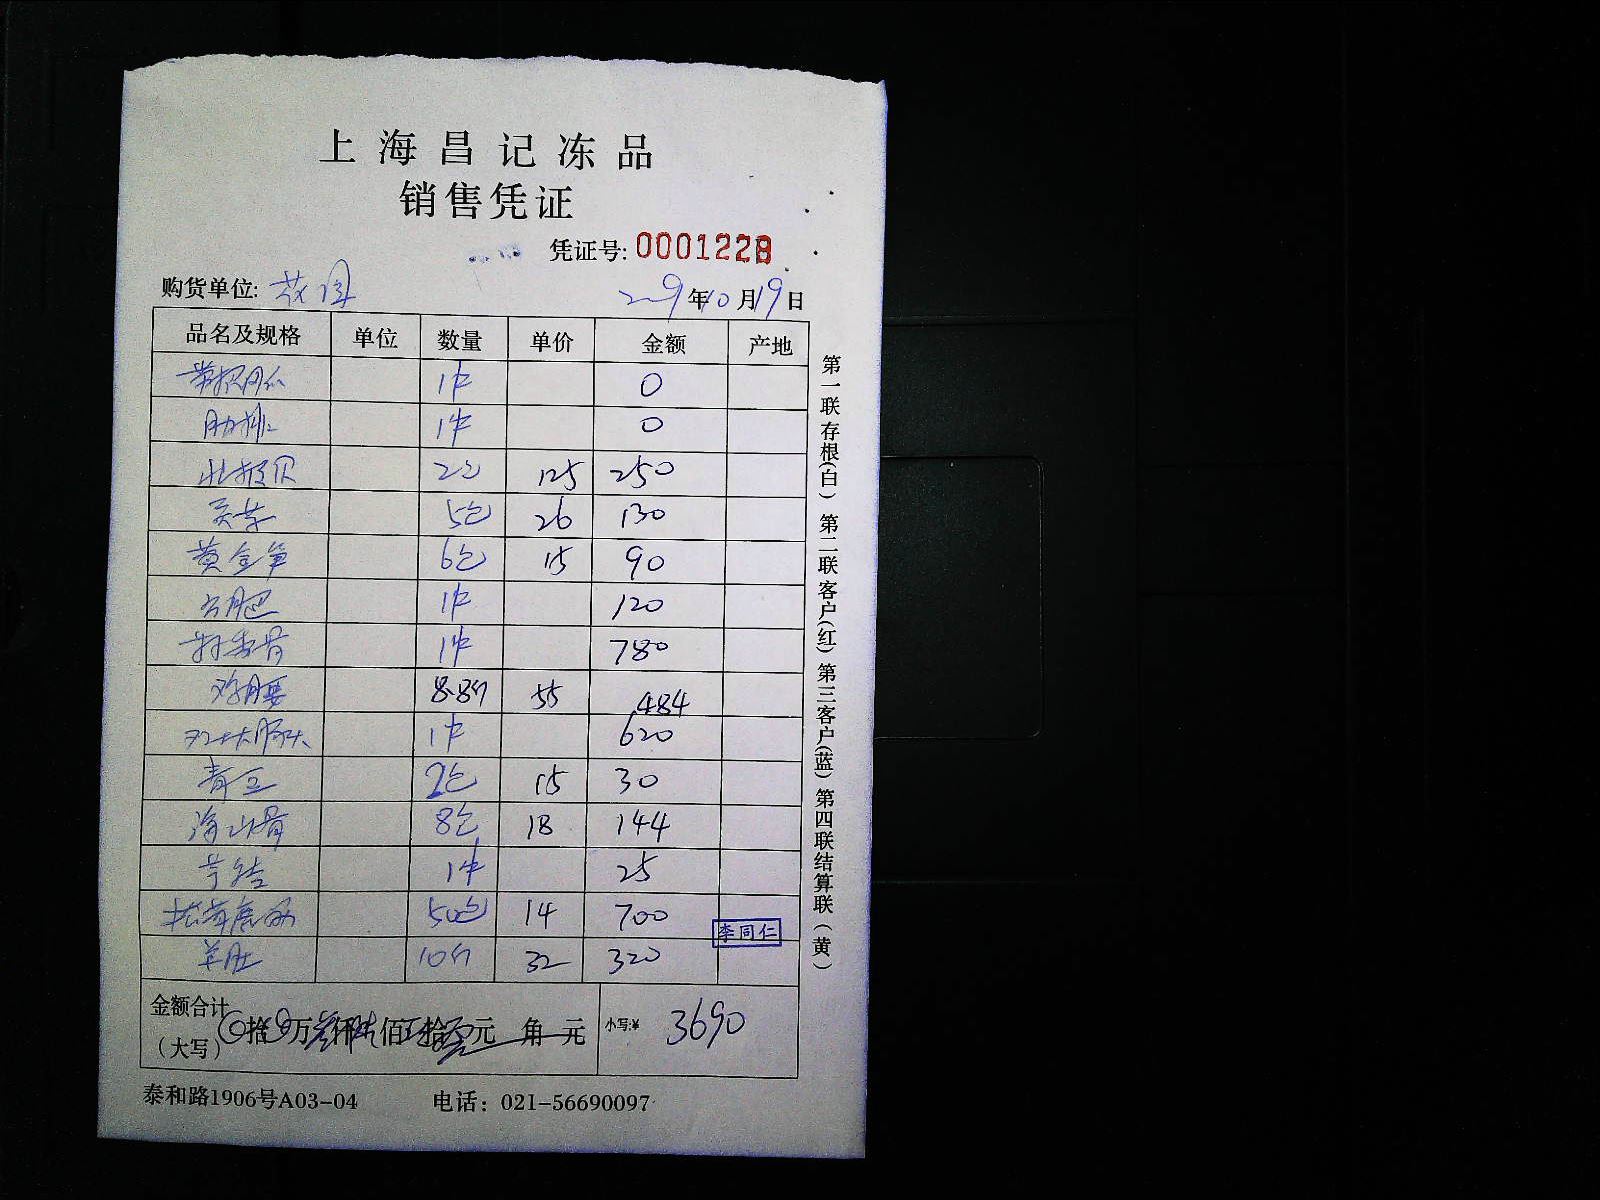 上海昌记冻品
销售凭证
凭证号: 0001228
购货单位: 花园
2019年10月19日
品名及规格 单位 数量 单价 金额 产地
1件 0
肋排 1件 0
北极贝 2包 125 250
5包 26 130
黄金笋 6包 15 90
1件 120
1件 780
鸡腰 8.8斤 55 484
1件 620
青豆 2包 15 30
8包 18 144
1件 25
50包 14 700
李同仁
羊肚 10斤 32 320
金额合计
(大写) 拾 万 仟 佰 拾 元 角 元 小写:¥ 3690
泰和路1906号A03-04 电话: 021-56690097
第一联存根(白) 第二联客户(红) 第三客户(蓝) 第四联结算联(黄)